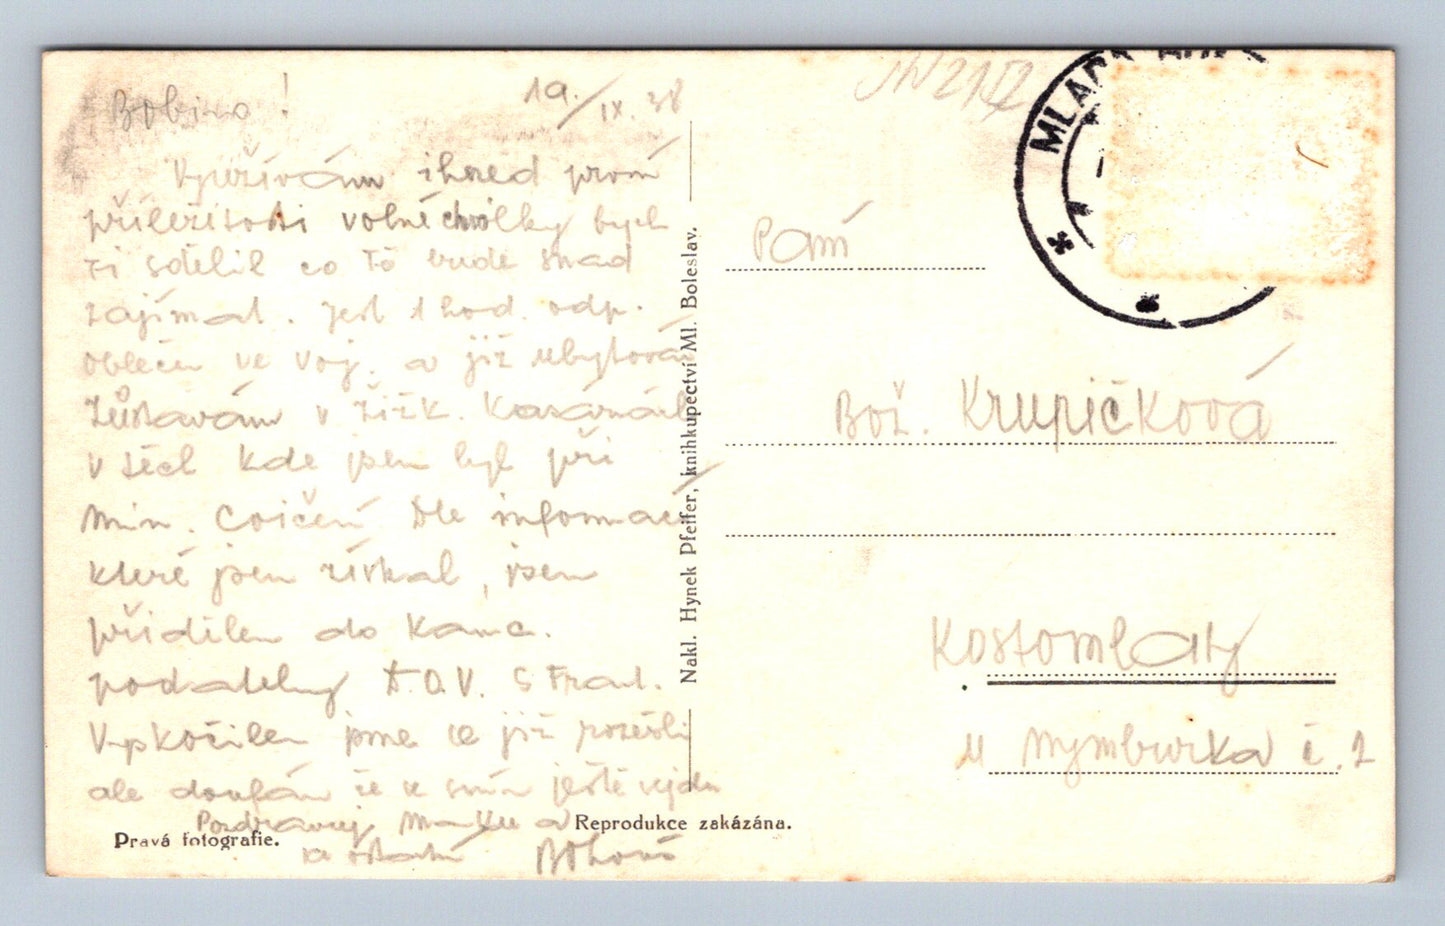 19./IX. 38
Bobino!
Využívám ihned první
příležitosti volné chvilky bych
ti sdělil co tě bude snad
zajímat. Jest 1 hod. odp.
oblečen ve voj. a již ubytován
Zůstávám v Žižk. Kasárnách
v těch kde jsem byl při
min. Cvičení Dle informací
které jsem získal, jsem
přidělen do Kanc.
S Frant.
jsme se již
ale doufám že se s ním ještě sejdu
Pozdravuj Mařku a
ostatní
Nakl. Hynek Pfeifer, knihkupectví Ml. Boleslav.
Pravá fotografie.
Reprodukce zakázána.
MLADÁ
Paní
Bož. Krupičková
Kostomlaty
u Nymburka č. 2